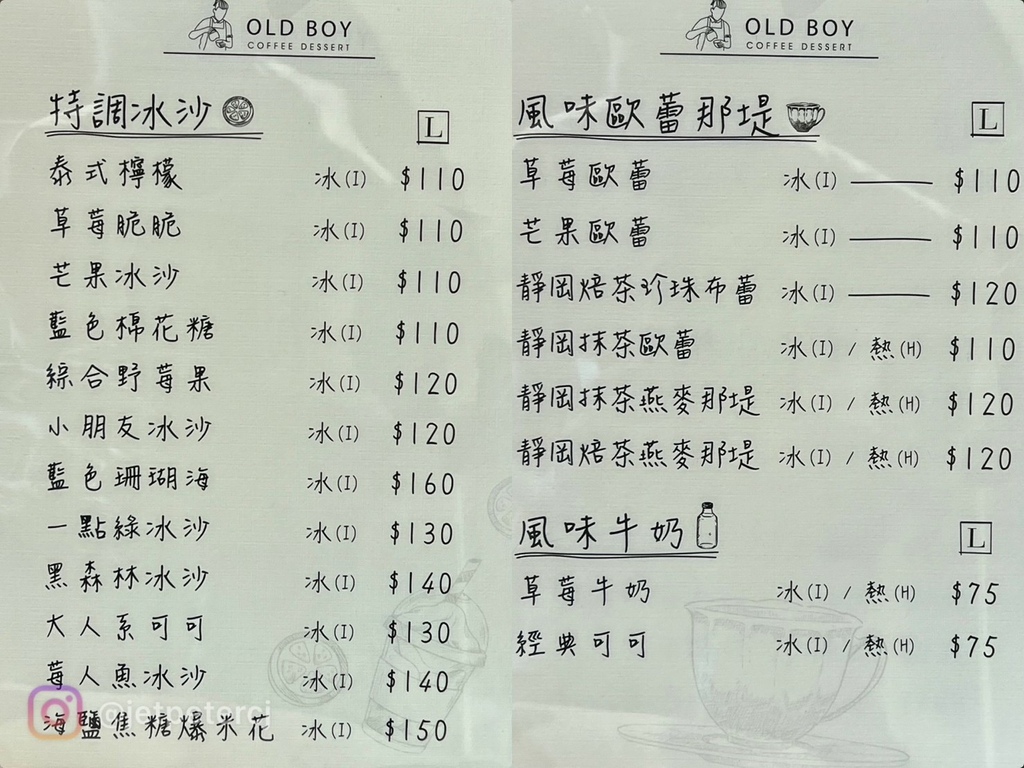 OLD BOY
COFFEE DESSERT
特調冰沙
L
泰式檸檬 冰(I) $110
草莓脆脆 冰(I) $110
芒果冰沙 冰(I) $110
藍色棉花糖 冰(I) $110
綜合野莓果 冰(I) $120
小朋友冰沙 冰(I) $120
藍色珊瑚海 冰(I) $160
一點綠冰沙 冰(I) $130
黑森林冰沙 冰(I) $140
大人系可可 冰(I) $130
莓人魚冰沙 冰(I) $140
海鹽焦糖爆米花 冰(I) $150
@jetpeterci
OLD BOY
COFFEE DESSERT
風味歐蕾那堤
L
草莓歐蕾 冰(I) $110
芒果歐蕾 冰(I) $110
靜岡焙茶珍珠布蕾 冰(I) $120
靜岡抹茶歐蕾 冰(I) / 熱(H) $110
靜岡抹茶燕麥那堤 冰(I) / 熱(H) $120
靜岡焙茶燕麥那堤 冰(I) / 熱(H) $120
風味牛奶
L
草莓牛奶 冰(I) / 熱(H) $75
經典可可 冰(I) / 熱(H) $75